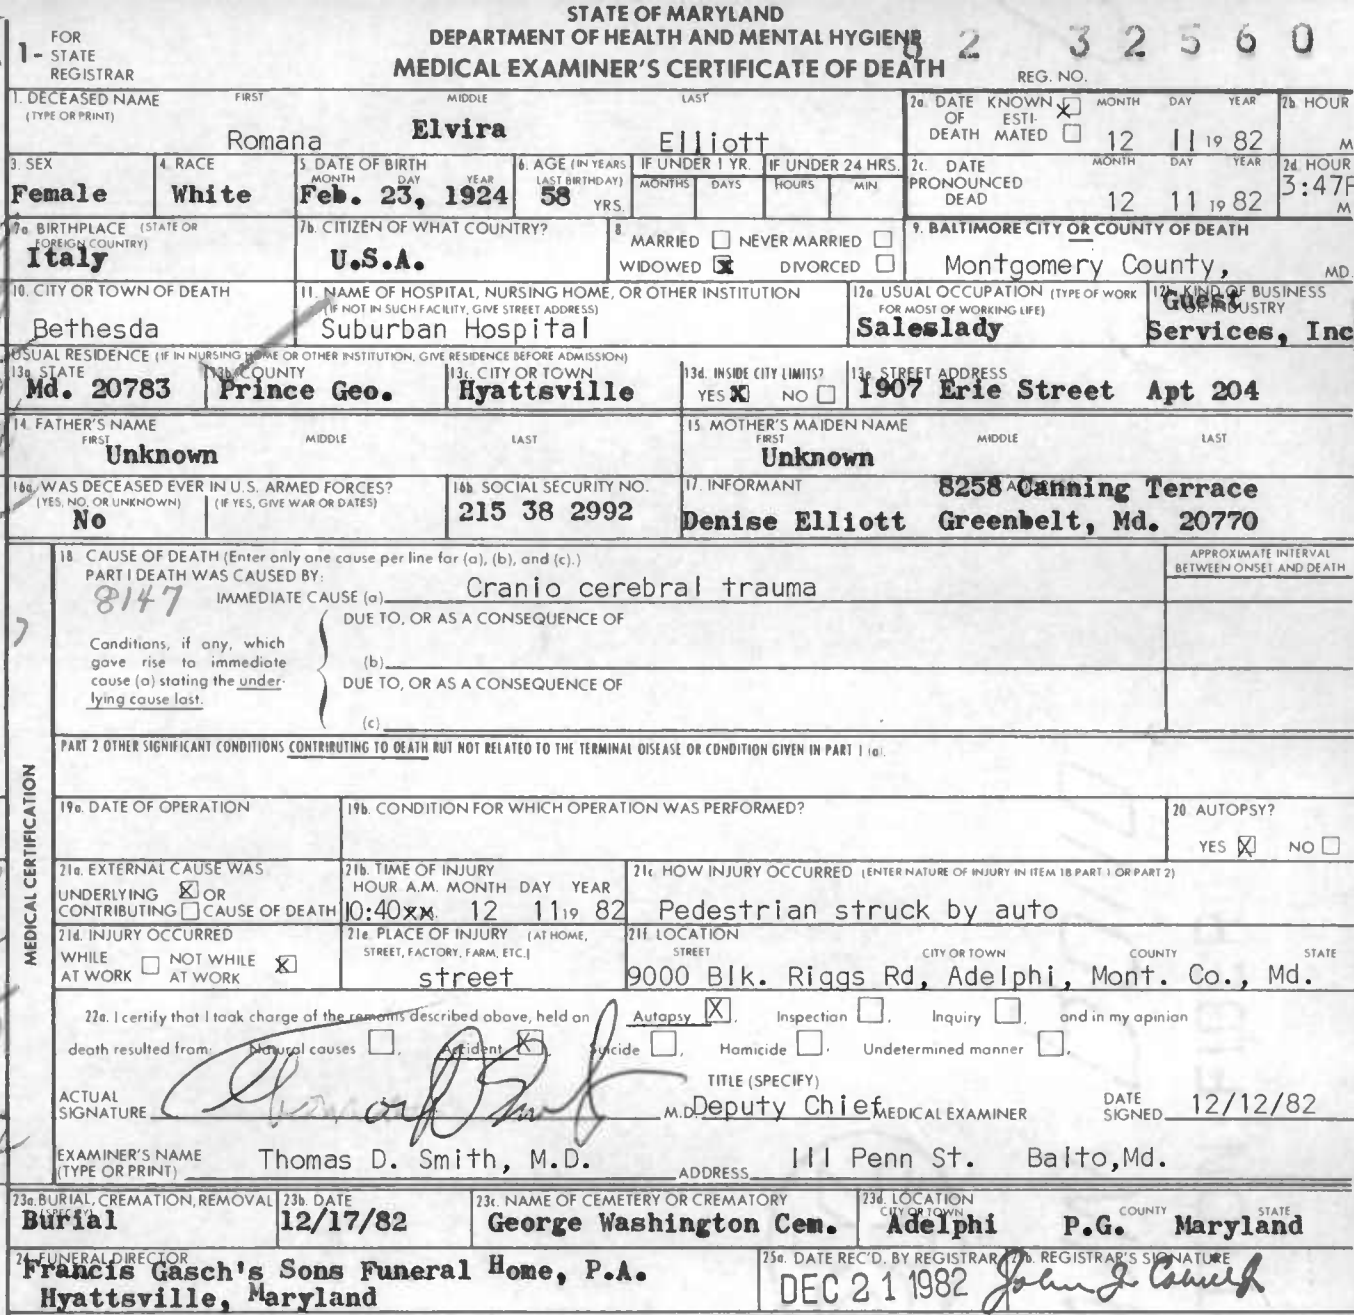 STATE OF MARYLAND
DEPARTMENT OF HEALTH AND MENTAL HYGIENE
MEDICAL EXAMINER'S CERTIFICATE OF DEATH
1- FOR STATE REGISTRAR
REG. NO. 82 32560
1. DECEASED NAME (TYPE OR PRINT) FIRST MIDDLE LAST
Romana Elvira Elliott
2a. DATE OF DEATH KNOWN ☒ ESTIMATED ☐ MONTH DAY YEAR
12 11 19 82
2b. HOUR M
3. SEX
Female
4. RACE
White
5. DATE OF BIRTH MONTH DAY YEAR
Feb. 23, 1924
6. AGE (IN YEARS LAST BIRTHDAY)
58 YRS.
IF UNDER 1 YR. MONTHS DAYS
IF UNDER 24 HRS. HOURS MIN
2c. DATE PRONOUNCED DEAD MONTH DAY YEAR
12 11 19 82
2d. HOUR
3:47P M
7a. BIRTHPLACE (STATE OR FOREIGN COUNTRY)
Italy
7b. CITIZEN OF WHAT COUNTRY?
U.S.A.
8. MARRIED ☐ NEVER MARRIED ☐
WIDOWED ☒ DIVORCED ☐
9. BALTIMORE CITY OR COUNTY OF DEATH
Montgomery County, MD.
10. CITY OR TOWN OF DEATH
Bethesda
11. NAME OF HOSPITAL, NURSING HOME, OR OTHER INSTITUTION
(IF NOT IN SUCH FACILITY, GIVE STREET ADDRESS)
Suburban Hospital
12a. USUAL OCCUPATION (TYPE OF WORK FOR MOST OF WORKING LIFE)
Saleslady
12b. KIND OF BUSINESS OR INDUSTRY
Guest Services, Inc
USUAL RESIDENCE (IF IN NURSING HOME OR OTHER INSTITUTION, GIVE RESIDENCE BEFORE ADMISSION)
13a. STATE
Md. 20783
13b. COUNTY
Prince Geo.
13c. CITY OR TOWN
Hyattsville
13d. INSIDE CITY LIMITS?
YES ☒ NO ☐
13e. STREET ADDRESS
1907 Erie Street Apt 204
14. FATHER'S NAME FIRST MIDDLE LAST
Unknown
15. MOTHER'S MAIDEN NAME FIRST MIDDLE LAST
Unknown
16a. WAS DECEASED EVER IN U.S. ARMED FORCES?
(YES, NO, OR UNKNOWN) (IF YES, GIVE WAR OR DATES)
No
16b. SOCIAL SECURITY NO.
215 38 2992
17. INFORMANT
Denise Elliott
8258 Canning Terrace
Greenbelt, Md. 20770
MEDICAL CERTIFICATION
18. CAUSE OF DEATH (Enter only one cause per line for (a), (b), and (c).)
APPROXIMATE INTERVAL BETWEEN ONSET AND DEATH
PART I DEATH WAS CAUSED BY:
8147
IMMEDIATE CAUSE (a) Cranio cerebral trauma
DUE TO, OR AS A CONSEQUENCE OF
Conditions, if any, which gave rise to immediate cause (a) stating the underlying cause last.
(b)
DUE TO, OR AS A CONSEQUENCE OF
(c)
PART 2 OTHER SIGNIFICANT CONDITIONS CONTRIBUTING TO DEATH BUT NOT RELATED TO THE TERMINAL DISEASE OR CONDITION GIVEN IN PART 1 (a).
19a. DATE OF OPERATION
19b. CONDITION FOR WHICH OPERATION WAS PERFORMED?
20. AUTOPSY?
YES ☒ NO ☐
21a. EXTERNAL CAUSE WAS
UNDERLYING ☒ OR
CONTRIBUTING ☐ CAUSE OF DEATH
21b. TIME OF INJURY
HOUR A.M. MONTH DAY YEAR
10:40xx. 12 11 19 82
21c. HOW INJURY OCCURRED (ENTER NATURE OF INJURY IN ITEM 18 PART 1 OR PART 2)
Pedestrian struck by auto
21d. INJURY OCCURRED
WHILE AT WORK ☐ NOT WHILE AT WORK ☒
21e. PLACE OF INJURY (AT HOME, STREET, FACTORY, FARM, ETC.)
street
21f. LOCATION STREET CITY OR TOWN COUNTY STATE
9000 Blk. Riggs Rd, Adelphi, Mont. Co., Md.
22a. I certify that I took charge of the remains described above, held an Autopsy ☒, Inspection ☐, Inquiry ☐, and in my opinion
death resulted from: Natural causes ☐, Accident ☒, Suicide ☐, Homicide ☐. Undetermined manner ☐.
ACTUAL SIGNATURE Thomas D. Smith M.D.
TITLE (SPECIFY)
Deputy Chief MEDICAL EXAMINER
DATE SIGNED 12/12/82
EXAMINER'S NAME (TYPE OR PRINT) Thomas D. Smith, M.D.
ADDRESS 111 Penn St. Balto,Md.
23a. BURIAL, CREMATION, REMOVAL (SPECIFY)
Burial
23b. DATE
12/17/82
23c. NAME OF CEMETERY OR CREMATORY
George Washington Cem.
23d. LOCATION CITY OR TOWN COUNTY STATE
Adelphi P.G. Maryland
24. FUNERAL DIRECTOR
Francis Gasch's Sons Funeral Home, P.A.
Hyattsville, Maryland
25a. DATE REC'D. BY REGISTRAR
DEC 21 1982
25b. REGISTRAR'S SIGNATURE
John J.